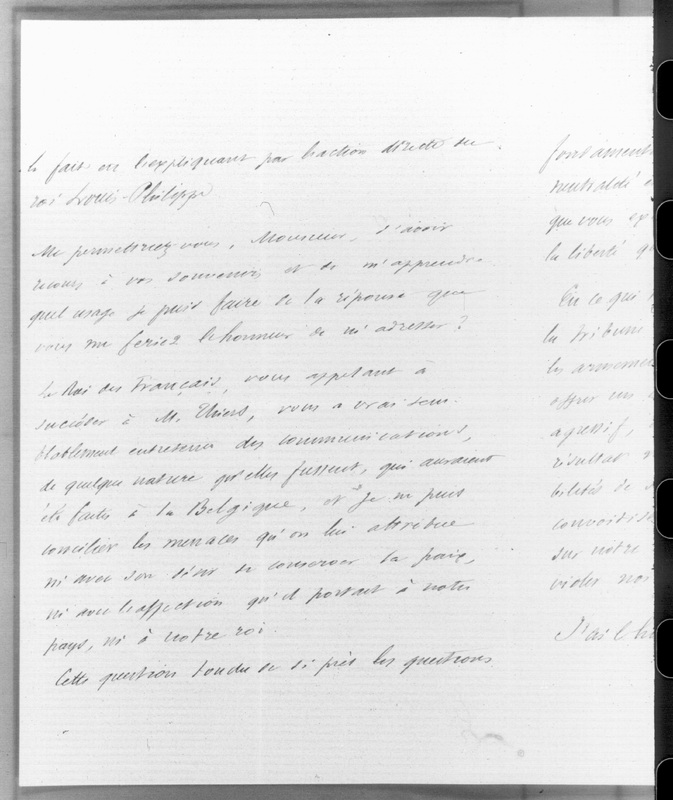 le fait en l'expliquant par l'action directe du
roi Louis-Philippe
Me permettriez-vous, Monsieur, d'avoir
recours à vos souvenirs et de m'apprendre
quel usage je puis faire de la réponse que
vous me feriez l'honneur de m'adresser ?
Le Roi des Français, vous appelant à
succéder à M. Thiers, vous a vraisem-
blablement entretenu des communications,
de quelque nature qu'elles fussent, qui auraient
été faites à la Belgique, et je ne puis
concilier les menaces qu'on lui attribue
ni avec son désir de conserver la paix,
ni avec l'affection qu'il portait à notre
pays, ni à notre roi.
Cette question touche de si près les questions
fondament
neutralité
que vous
la liberté
En ce qui
la tribune
les armemen
offrir un
agressif,
résultat
bilités de
convoitise
sur notre
violer
J'ai l'h